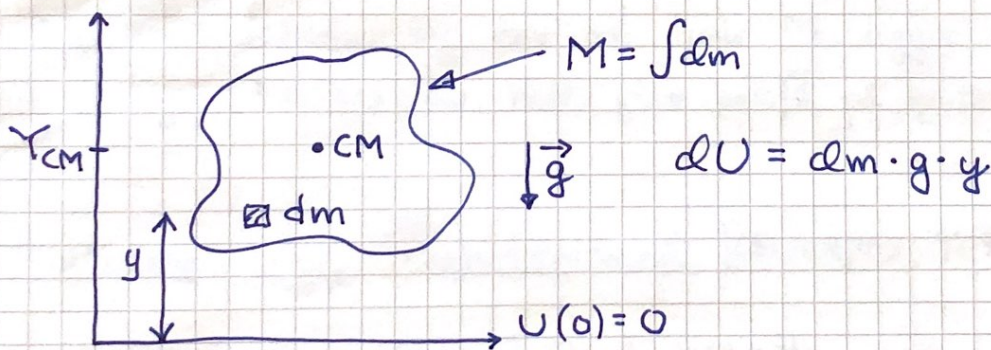 M = ∫dm
Y_CM
•CM
g⃗
dU = dm·g·y
dm
y
U(0)=0